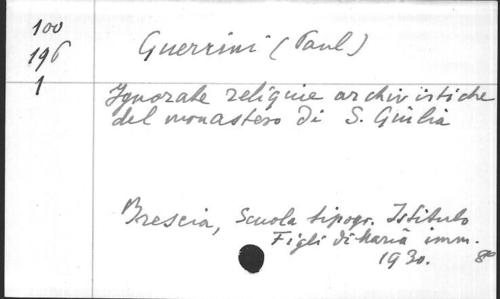 100
196
1
Guerrini (Paul)
Ignorate religuie archivistiche
del monastero di S. Giulia
Brescia, Scuola tipogr. Istituto
Figli di Maria imm.
1930. 8°